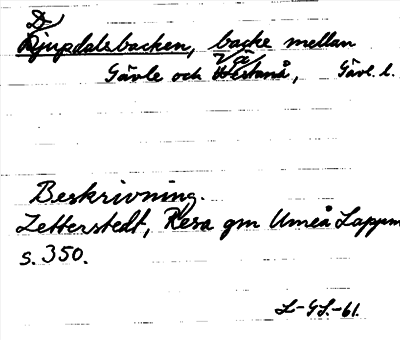 Djupdalsbacken, backe mellan
Gävle och Västanå, Gävl. l.
Beskrivning.
Zetterstedt, Resa gm Umeå Lappm
s. 350.
L-GS.-61.